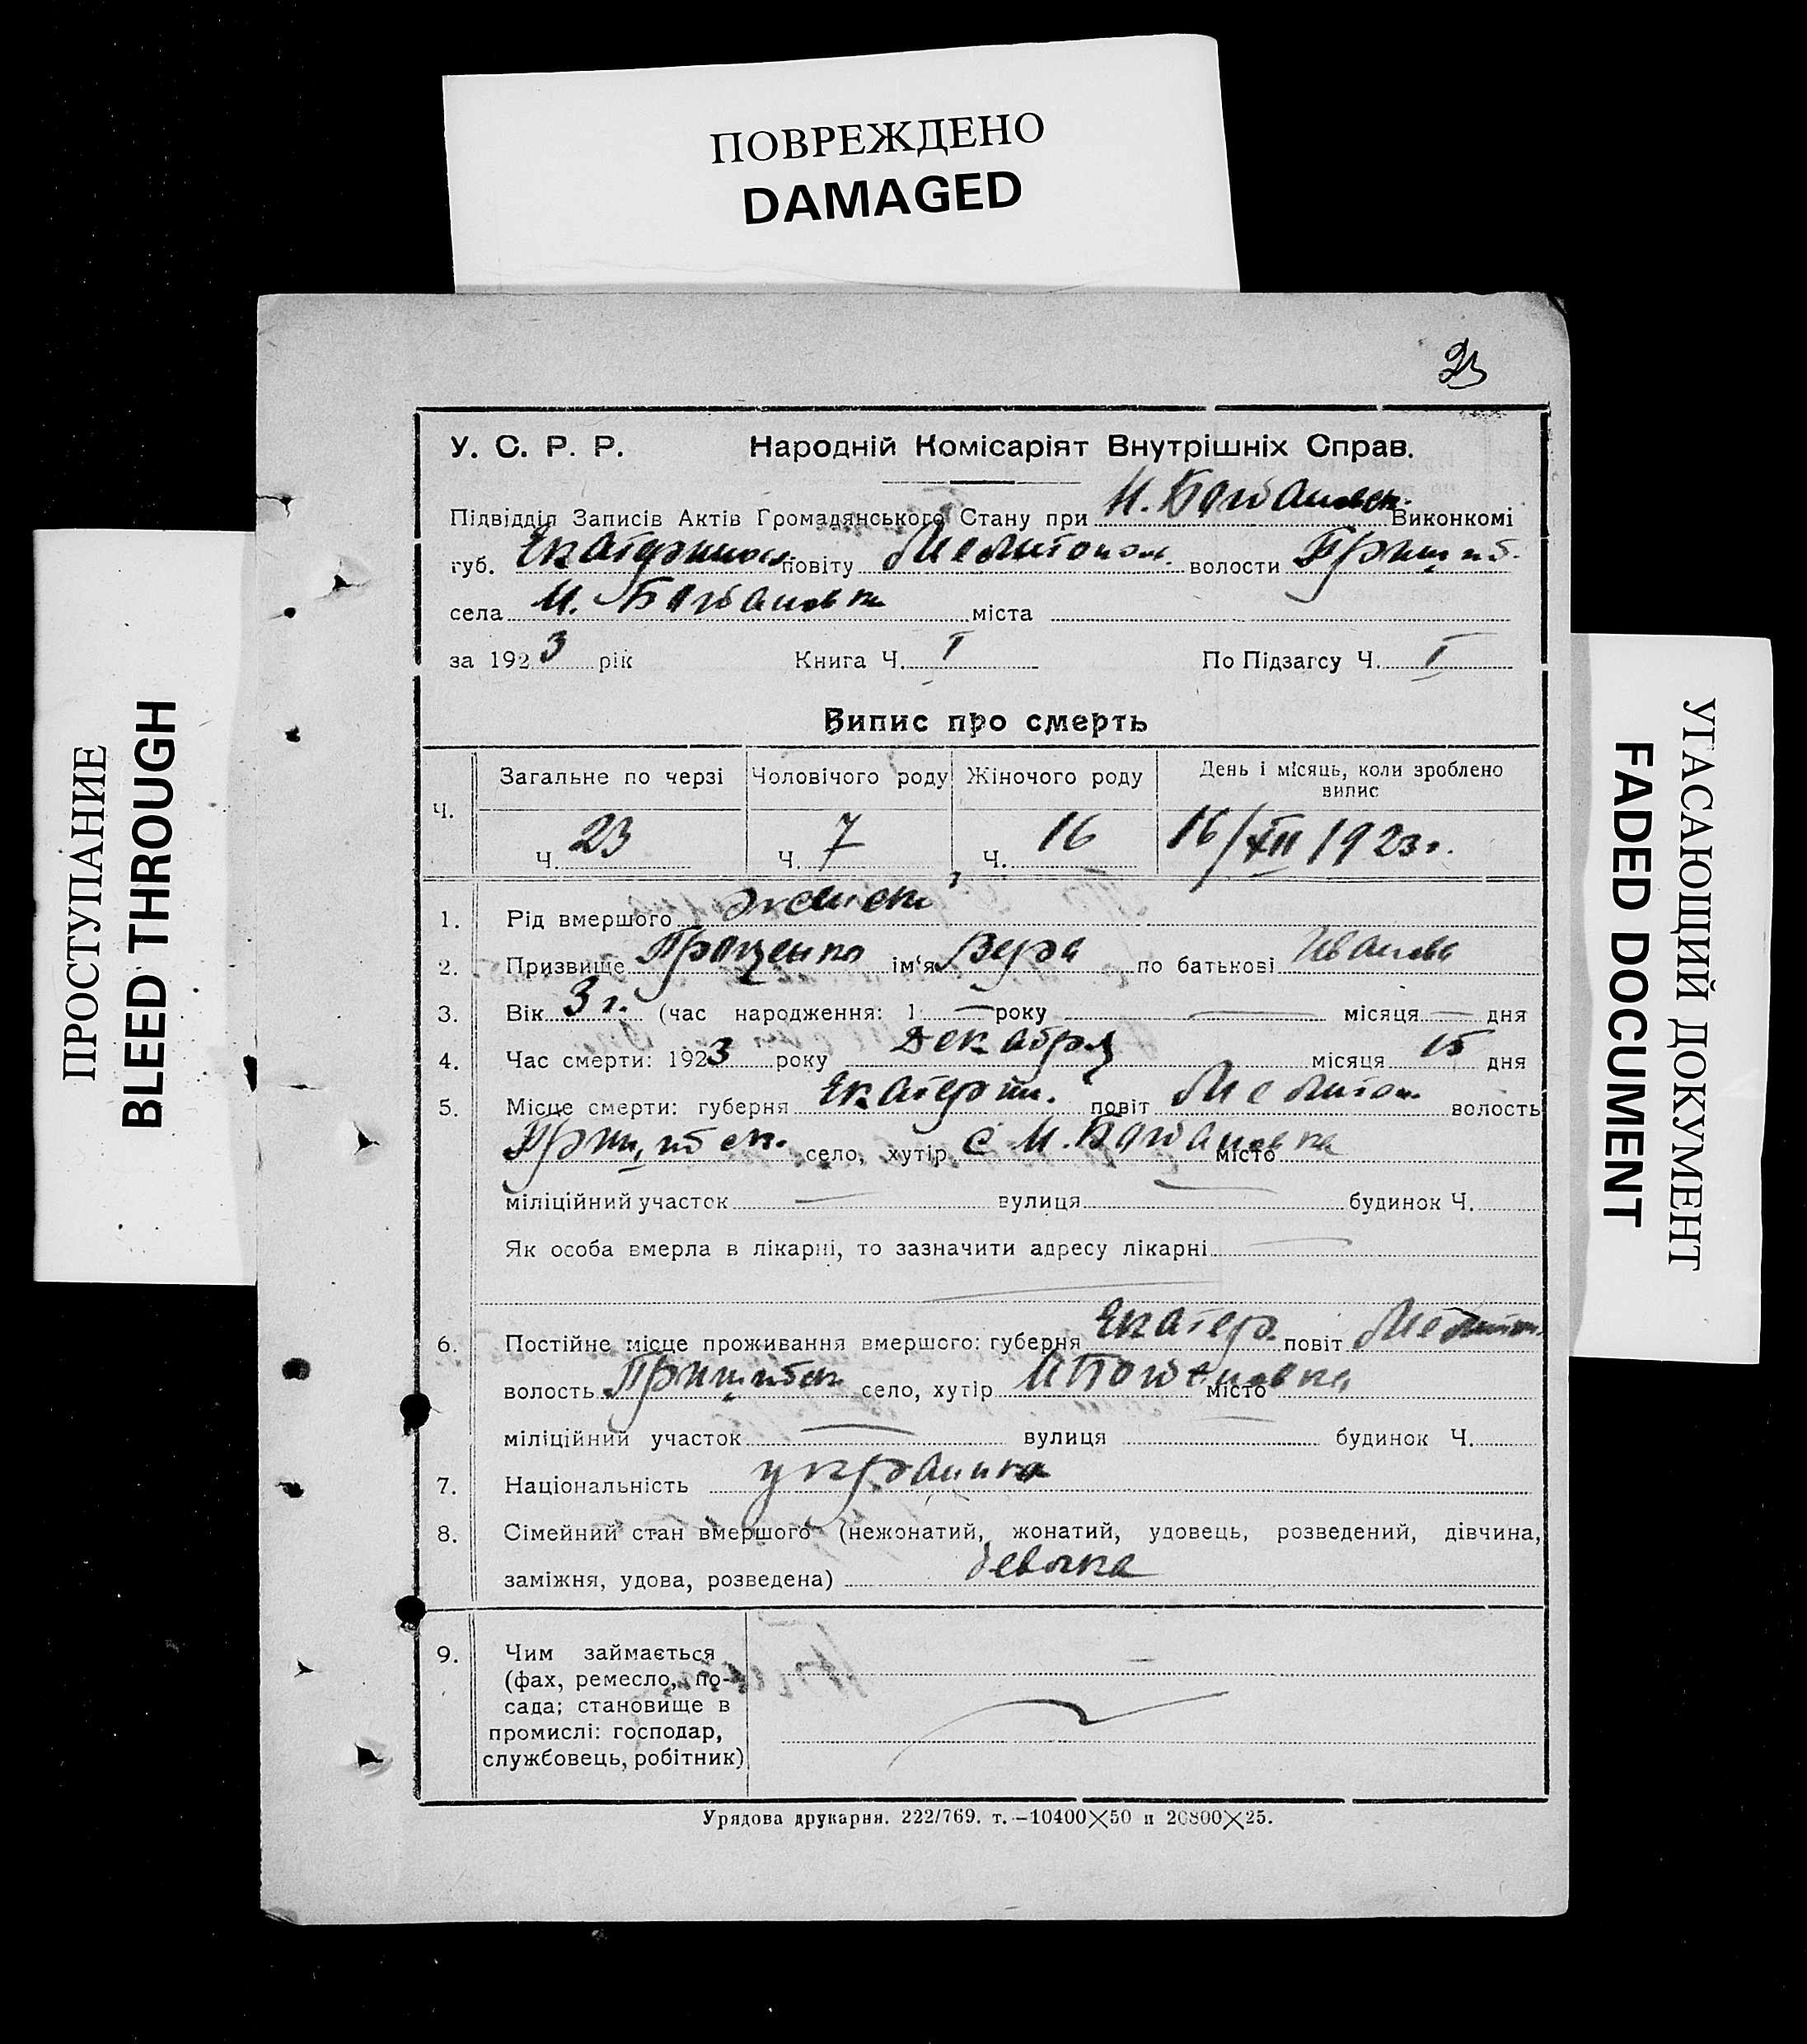 ПОВРЕЖДЕНО
DAMAGED
ПРОСТУПАНИЕ
BLEED THROUGH
УГАСАЮЩИЙ ДОКУМЕНТ
FADED DOCUMENT
23
У. С. Р. Р. Народній Комісаріят Внутрішніх Справ.
Підвідділ Записів Актів Громадянського Стану при М. Богдановск. Виконкомі
губ. Екатеринос. повіту Мелитопол. волости Пришиб.
села М. Богдановка міста
за 1923 рік Книга Ч. I По Підзагсу Ч. I
Випис про смерть
Ч. Загальне по черзі Чоловічого роду Жіночого роду День і місяць, коли зроблено випис
Ч. 23 Ч. 7 Ч. 16 16/XII 1923 г.
1. Рід вмершого женск
2. Призвище Проценко ім'я Вера по батькові Иванова
3. Вік 3 г. (час народження: 1 — року — місяця — дня
4. Час смерти: 1923 року Декабря місяця 15 дня
5. Місце смерти: губерня Екатерин. повіт Мелитоп. волость
Пришибск. село, хутір с М. Богдановка місто
міліційний участок — вулиця — будинок Ч.
Як особа вмерла в лікарні, то зазначити адресу лікарні —
6. Постійне місце проживання вмершого: губерня Екатер. повіт Мелитоп.
волость Пришибск село, хутір М Богдановка місто
міліційний участок — вулиця будинок Ч.
7. Національність украинка
8. Сімейний стан вмершого (нежонатий, жонатий, удовець, розведений, дівчина,
заміжня, удова, розведена) девочка
9. Чим займається
(фах, ремесло, по-
сада; становище в
промислі: господар,
службовець, робітник)
Урядова друкарня. 222/769. т.—10400×50 п 20800×25.